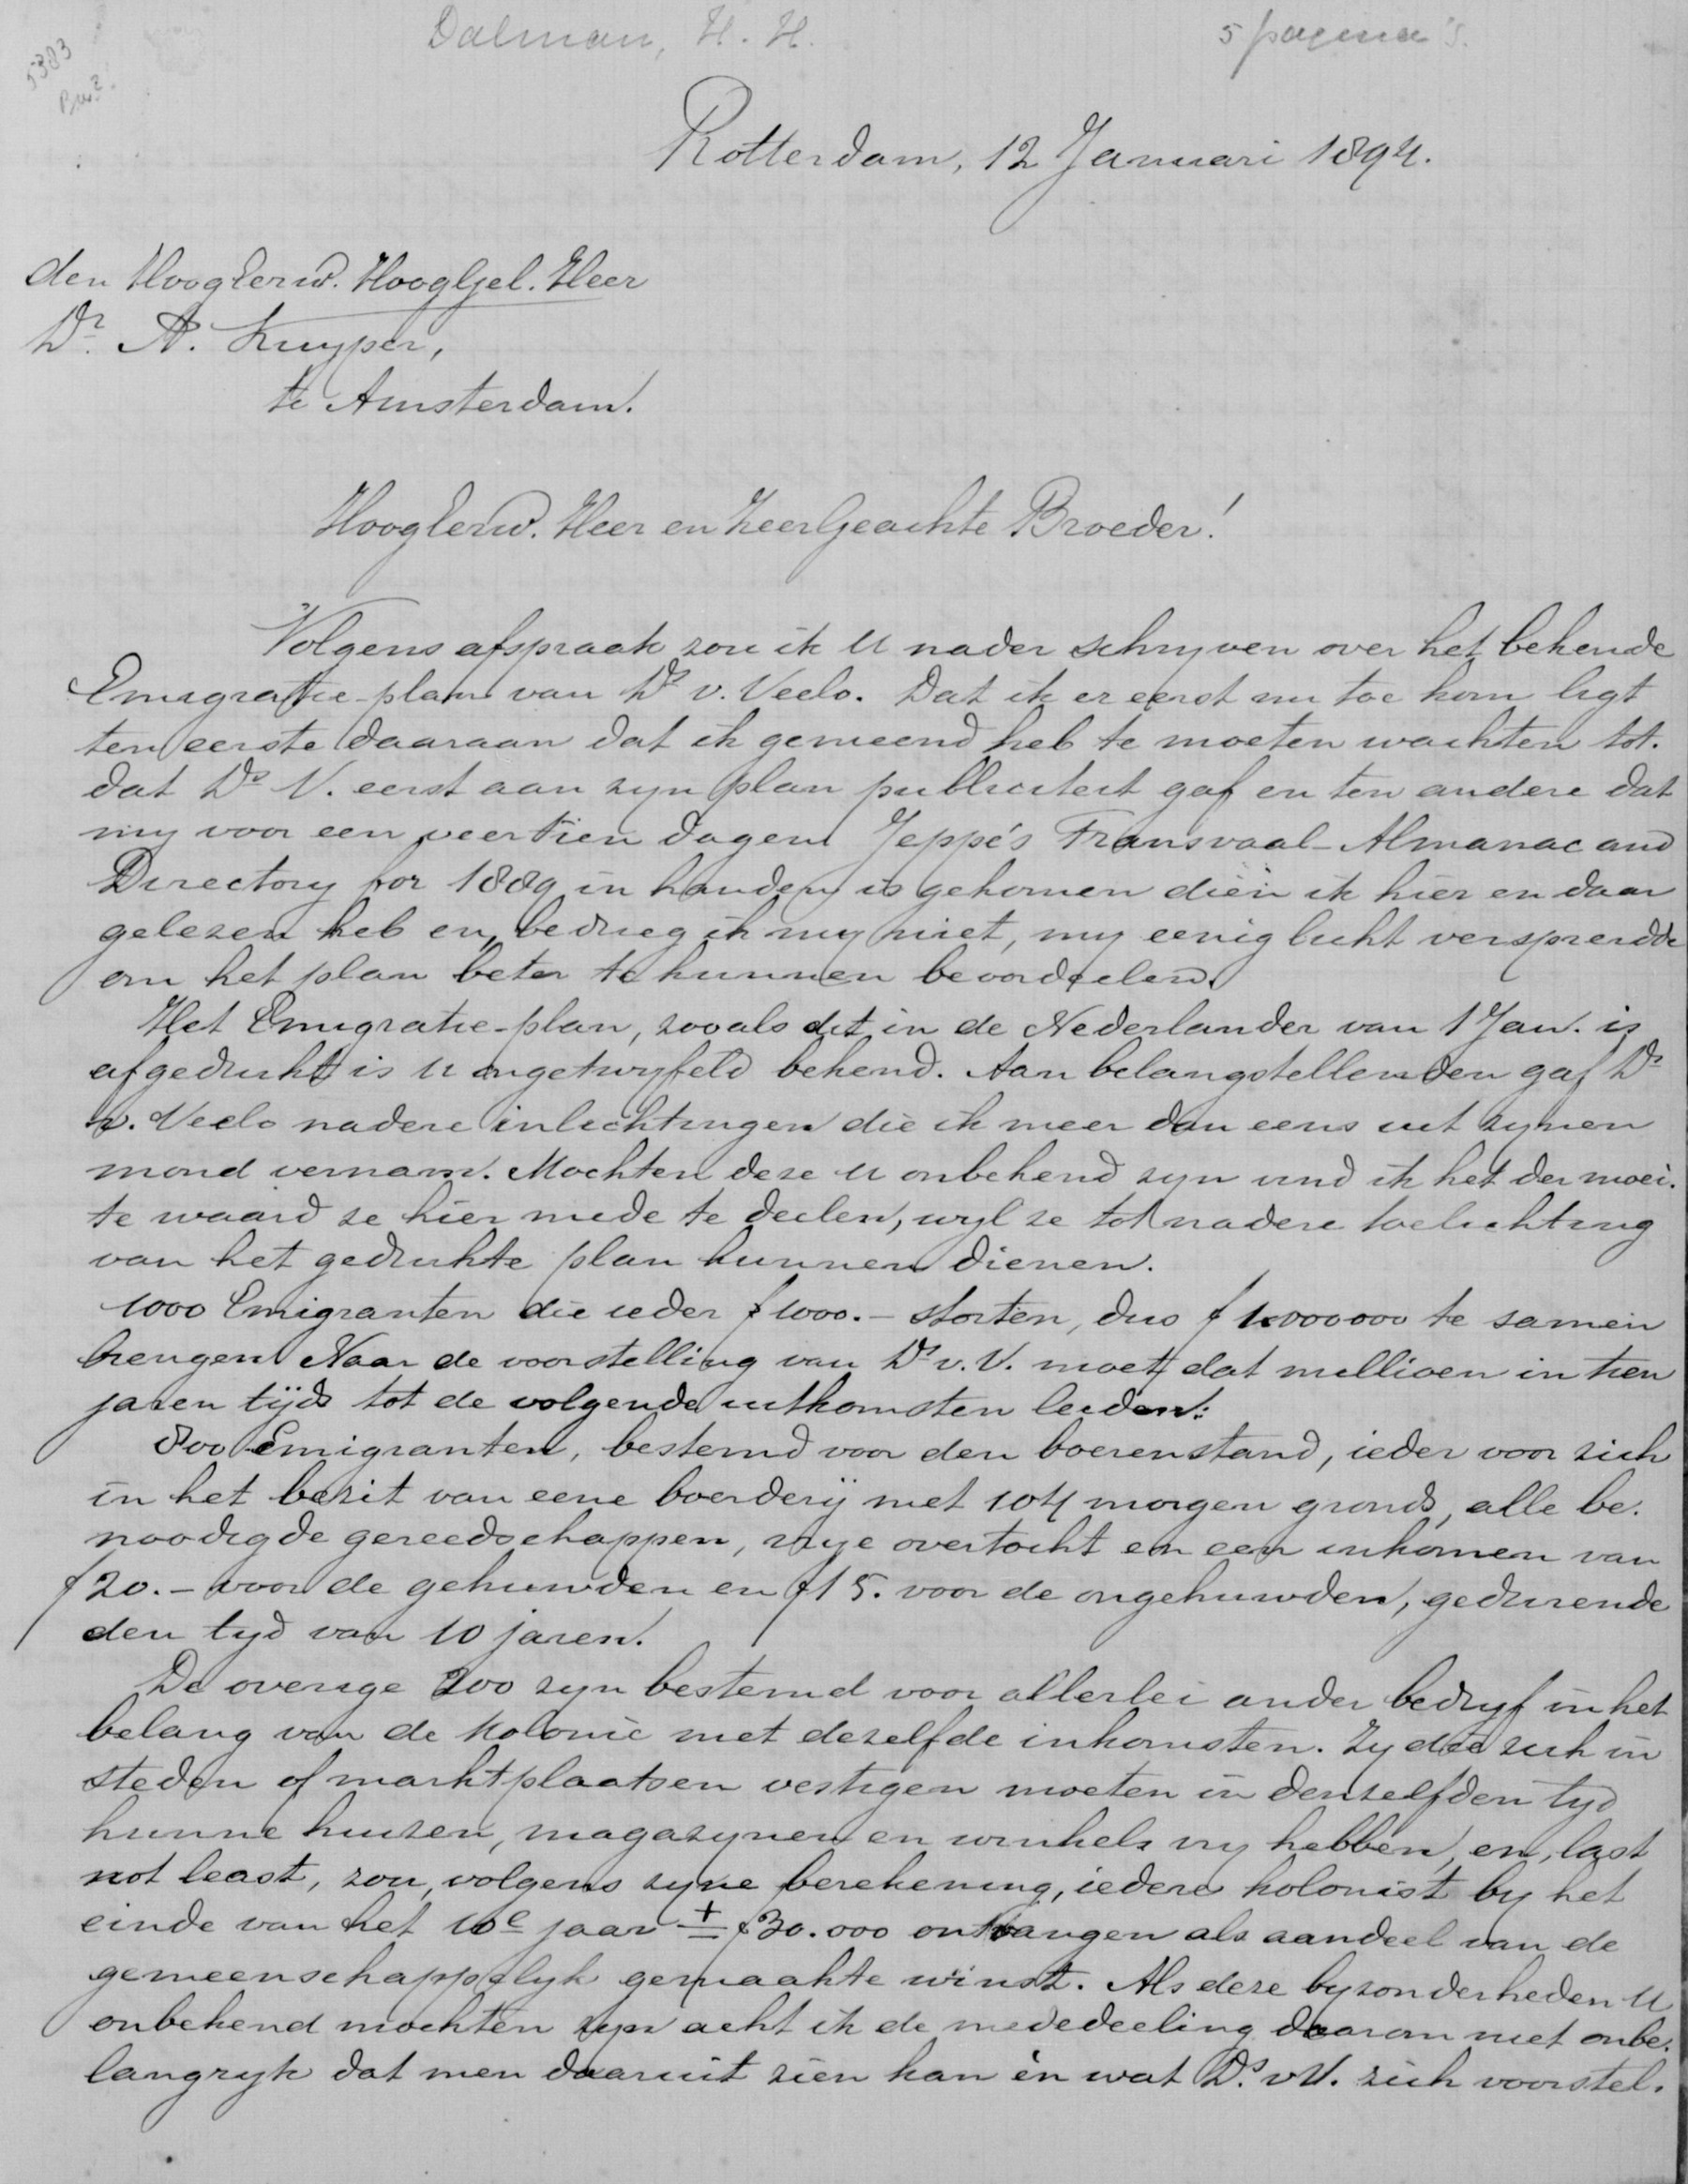 Dalman, H. H.
5 pagina's.
5383
Rotterdam, 12 Januari 1894.
den HoogEerw. HoogGel. Heer
Dr. A. Kuyper,
te Amsterdam.
HoogEerw. Heer en ZeerGeachte Broeder!
Volgens afspraak zou ik U nader schryven over het bekende
Emigratie-plan van Ds v. Veelo. Dat ik er eerst nu toe kom ligt
ten eerste daaraan dat ik gemeend heb te moeten wachten tot.
dat Ds V. eerst aan zyn plan publiciteit gaf en ten andere dat
my voor een veertien dagen Jeppe's Transvaal-Almanac and
Directory for 1889 in handen is gekomen dien ik hier en daar
gelezen heb en, bedrieg ik my niet, my eenig licht verspreidde
om het plan beter te kunnen beoordeelen.
Het Emigratie-plan, zooals dit in de Nederlander van 1 Jan. is
afgedrukt is U ongetwyfeld bekend. Aan belangstellenden gaf Ds
v. Veelo nadere inlichtingen die ik meer dan eens uit zynen
mond vernam. Mochten deze U onbekend zyn vind ik het der moei.
te waard ze hier mede te deelen, wyl ze tot nadere toelichting
van het gedrukte plan kunnen dienen.
1000 Emigranten die ieder f 1000.- storten, dus f 1.000000 te samen
brengen. Naar de voorstelling van Ds v. V. moet dat millioen in tien
jaren tijds tot de volgende uitkomsten leiden:
800 Emigranten, bestemd voor den boerenstand, ieder voor zich
in het bezit van eene boerderij met 104 morgen gronds, alle be.
noodigde gereedschappen, vrye overtocht en een inkomen van
f 20.- voor de gehuwden en f 15. voor de ongehuwden, gedurende
den tyd van 10 jaren.
De overige 200 zyn bestemd voor allerlei ander bedryf in het
belang van de Kolonie met dezelfde inkomsten. Zy die zich in
steden of marktplaatsen vestigen moeten in denzelfden tyd
hunne huizen, magazynen en winkels vry hebben, en, last
not least, zou, volgens zyne berekening, iedere kolonist by het
einde van het 10e jaar ± f 30.000 ontvangen als aandeel van de
gemeenschappelyk gemaakte winst. Als deze byzonderheden U
onbekend mochten zyn acht ik de mededeeling daarom niet onbe.
langryk dat men daaruit zien kan èn wat Ds. v V. zich voorstel.